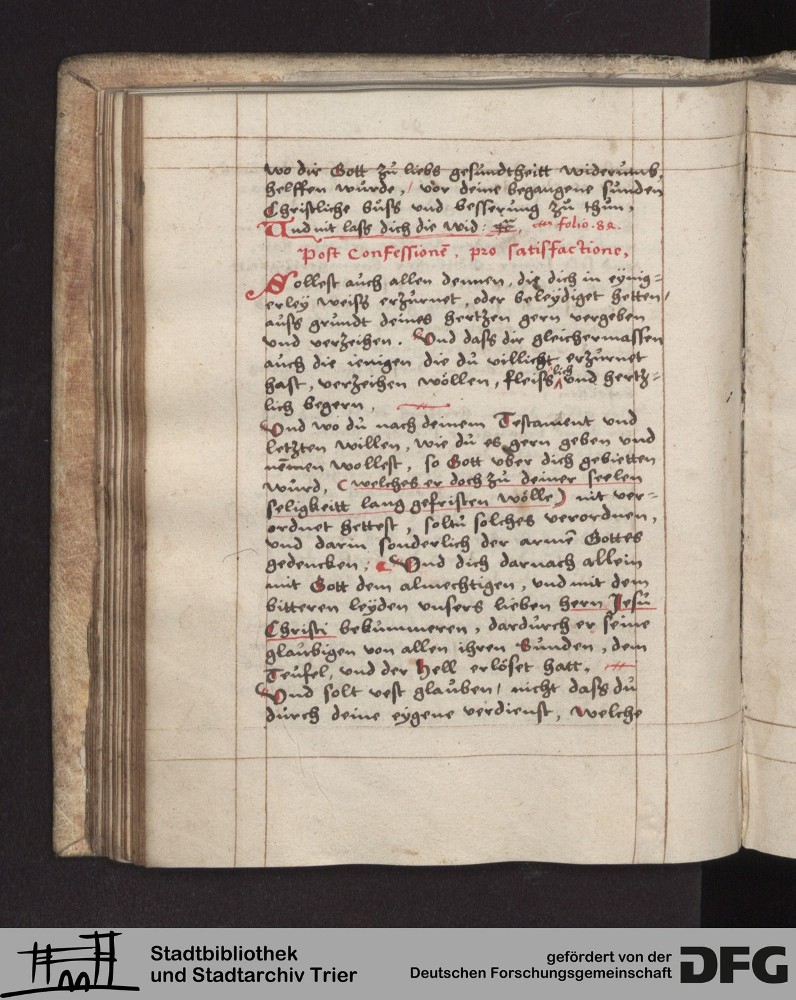 wo dir Gott zů liebs gesůndtheitt widerumb,
helffen wůrde, / vor deine begangene sunden
Christliche bůss vnd besserung zů thun,
Vnd nit lass dich die wid: folio. 82.
Post Confessionē, pro satisfactione,
Sollest auch allen dennen, die dich in eynig=
erley weiss erzůrnet, oder beleydiget hetten,
auss grundt deines hertzen gern vergeben
vnd verzeihen. Vnd dass dir gleichermassen
auch die ienigen die dů villicht erzůrnet
hast, verzeihen wöllen, fleisslich vnd hertz=
lich begern,
Vnd wo dů nach deinem Testament vnd
letzten willen, wie dů es gern geben vnd
nēmen wollest, so Gott vber dich gebietten
wůrd, (welches er doch zů deiner seelen
seligkeitt lang gefristen wölle) nit ver=
ordnet hettest, soltů solches verordnen,
vnd darin sonderlich der armē Gottes
gedencken; Vnd dich darnach allein
mit Gott dem almechtigen, vnd mit dem
bitteren leyden vnsers lieben hern Jesů
Christi bekůmmeren, dardůrch er seine
glaůbigen von allen ihren Sunden, dem
Teůfel, vnd der Hell erlöset hatt.
Vnd solt vest glaůben, nicht dass dů
důrch deine eygene verdienst, welche
Stadtbibliothek
und Stadtarchiv Trier
gefördert von der
Deutschen Forschungsgemeinschaft
DFG